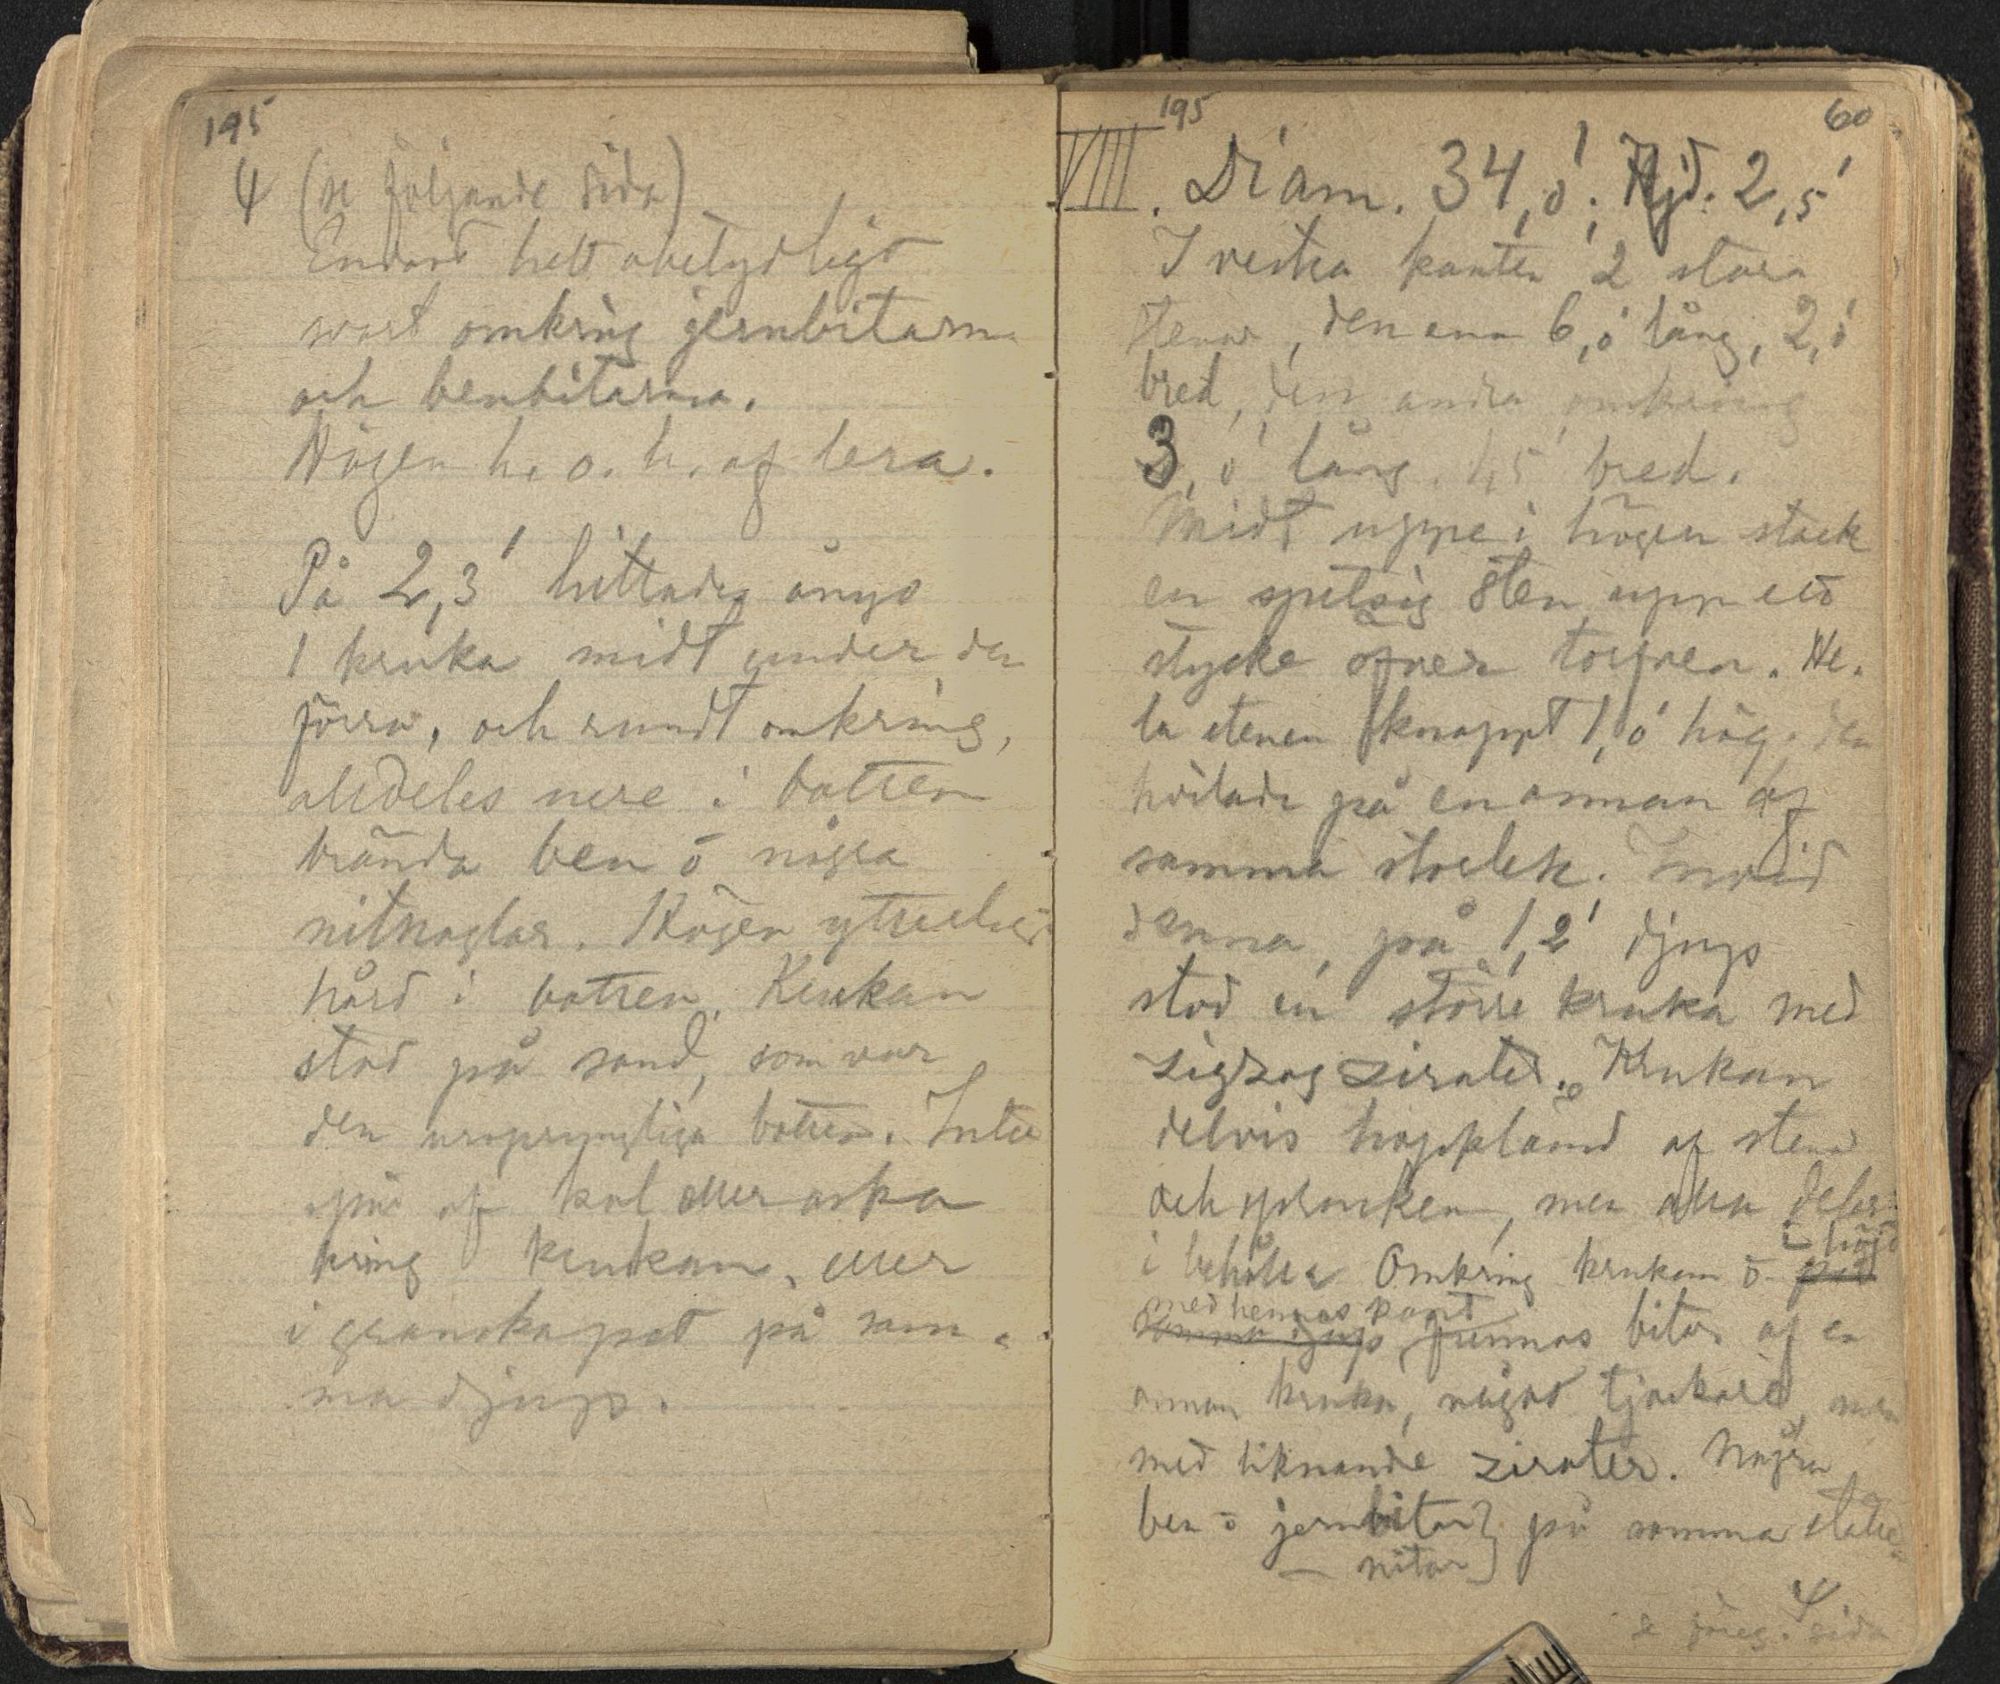 195
4 (se följande sida)
Endast helt obetydligt
svart omkring jernbitarna
och benbitarna.
Högen h. o. h. af lera.
På 2,3' hittades ånyo
1 kruka midt under den
förra, och rundt omkring,
alldeles nere i botten
brända ben o några
nitnaglar. Högen ytterligt
hård i botten. Krukan
stod på sand, som var
den ursprungliga botten. Intet
spår af kol eller aska
kring krukan, eller
i granskapet på sam-
ma djup.
195
60
VIII. Diam. 34,0'; Hjd. 2,5'
I vestra kanten 2 stora
stenar, den ena 6,0' lång, 2,0'
bred, den andra omkring
3,0' lång. 1,5' bred.
Midt uppe i högen stack
en spetsig sten upp ett
stycke öfver torfven. He-
la stenen knappt 1,0' hög. den
hvilade på en annan af
samma storlek. Invid
denna, på 1,2' djup
stod en större kruka med
zigzag zirater. Krukan
delvis hopklämd af stenar
och sprucken, men alla delar
i behåll. Omkring krukan o på i höjd
samma djup med hennes kant funnos bitar af en
annan kruka, något tjockare, men
med liknande zirater. Några
ben o jernbitar } på samma ställe
— nitar }
4
se föreg. sida